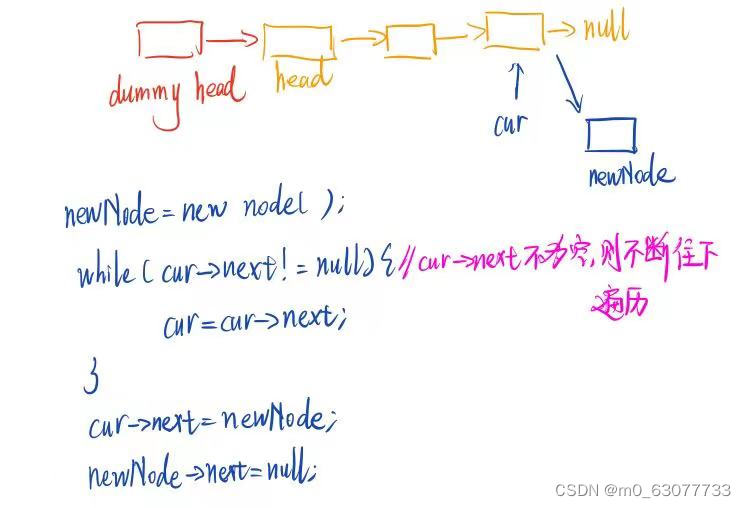 null
dummy head
head
cur
newNode
newNode = new node( );
while( cur->next != null) { //cur->next不为空,则不断往下
遍历
cur = cur->next;
}
cur->next = newNode;
newNode->next = null;
CSDN @m0_63077733